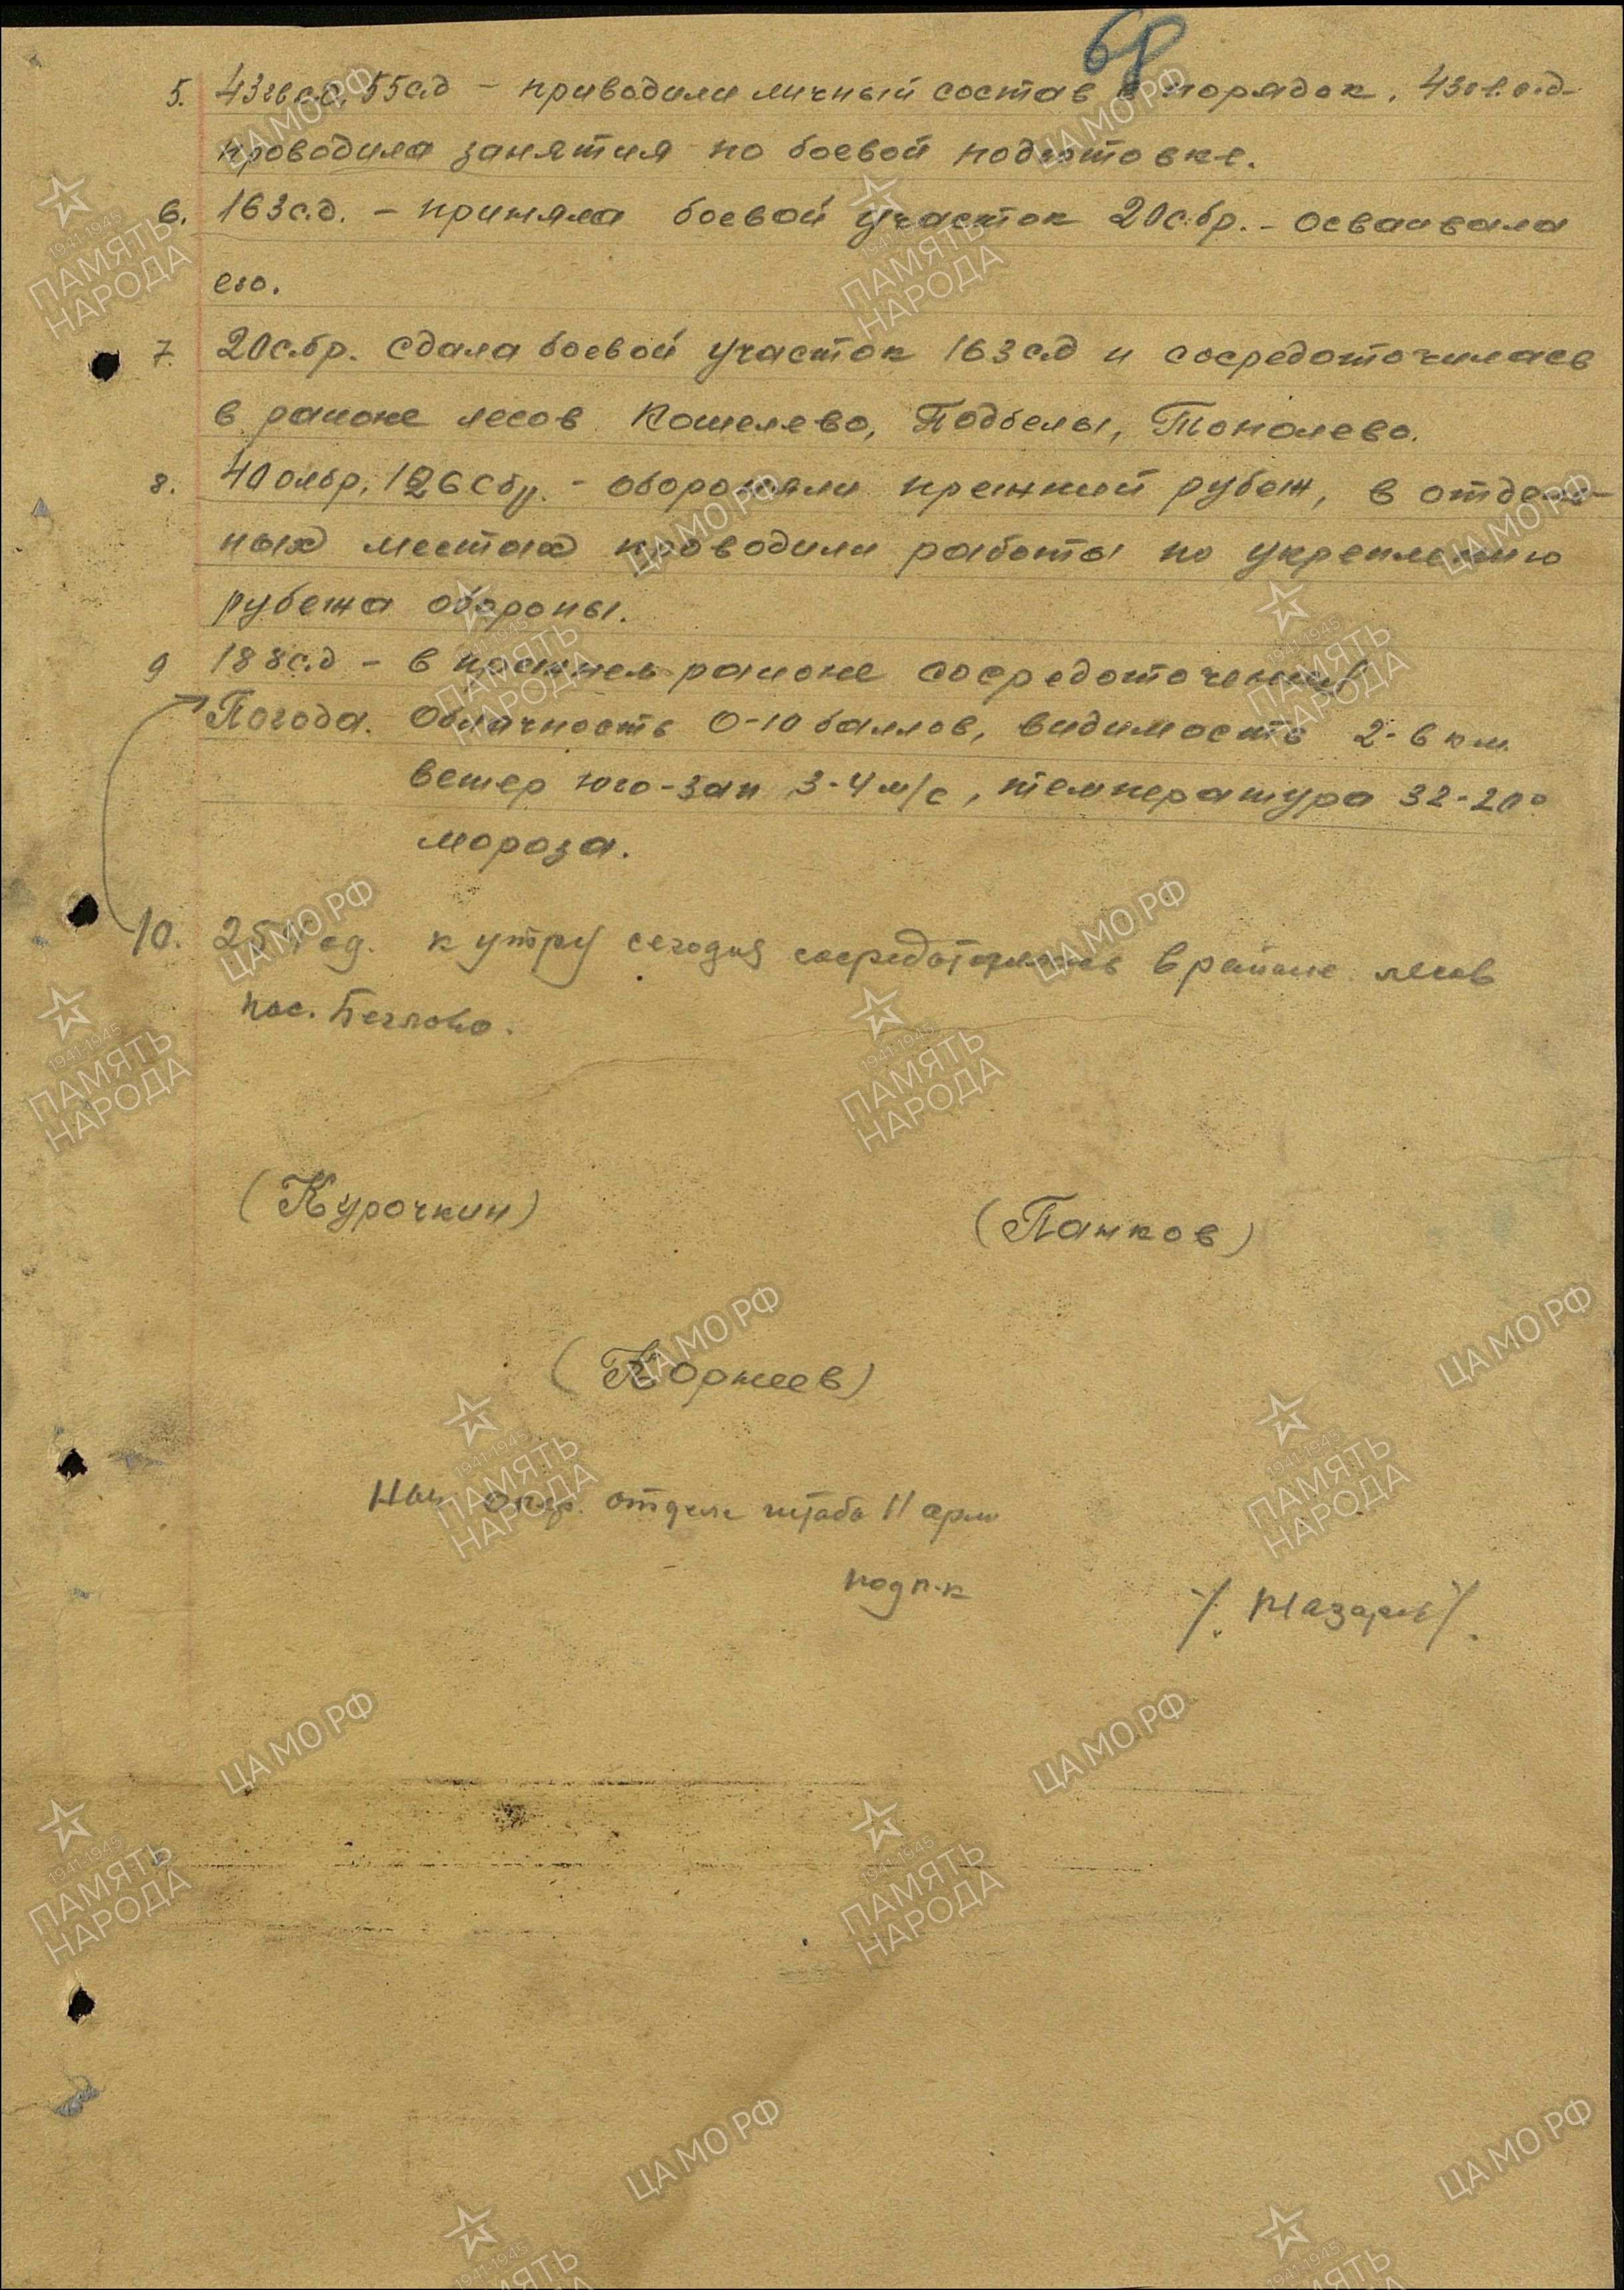 68
5. 43 гв.сд, 55 сд - приводили личный состав в порядок. 43 гв.сд-
проводила занятия по боевой подготовке.
6. 163 с.д. - приняла боевой участок 20 сбр. - осваивала
его.
7. 20 сбр. сдала боевой участок 163 сд и сосредоточилась
в районе лесов Кошелево, Подбелы, Тополево.
8. 40 олбр, 126 сбр. - обороняли прежний рубеж, в отдель-
ных местах проводили работы по укреплению
рубежа обороны.
9 188 с.д - в прежнем районе сосредоточения
Погода. Облачность 0-10 баллов, видимость 2-6 км
ветер юго-зап 3-4 м/с, температура 32-20°
мороза.
10. сд. к утру сегодня сосредоточилась в районе лесов
пос. Беглово.
(Курочкин)
(Панков)
(Корнеев)
Нач опер. отдела штаба 11 арм
подп-к
ЦАМО РФ
1941-1945
ПАМЯТЬ
НАРОДА